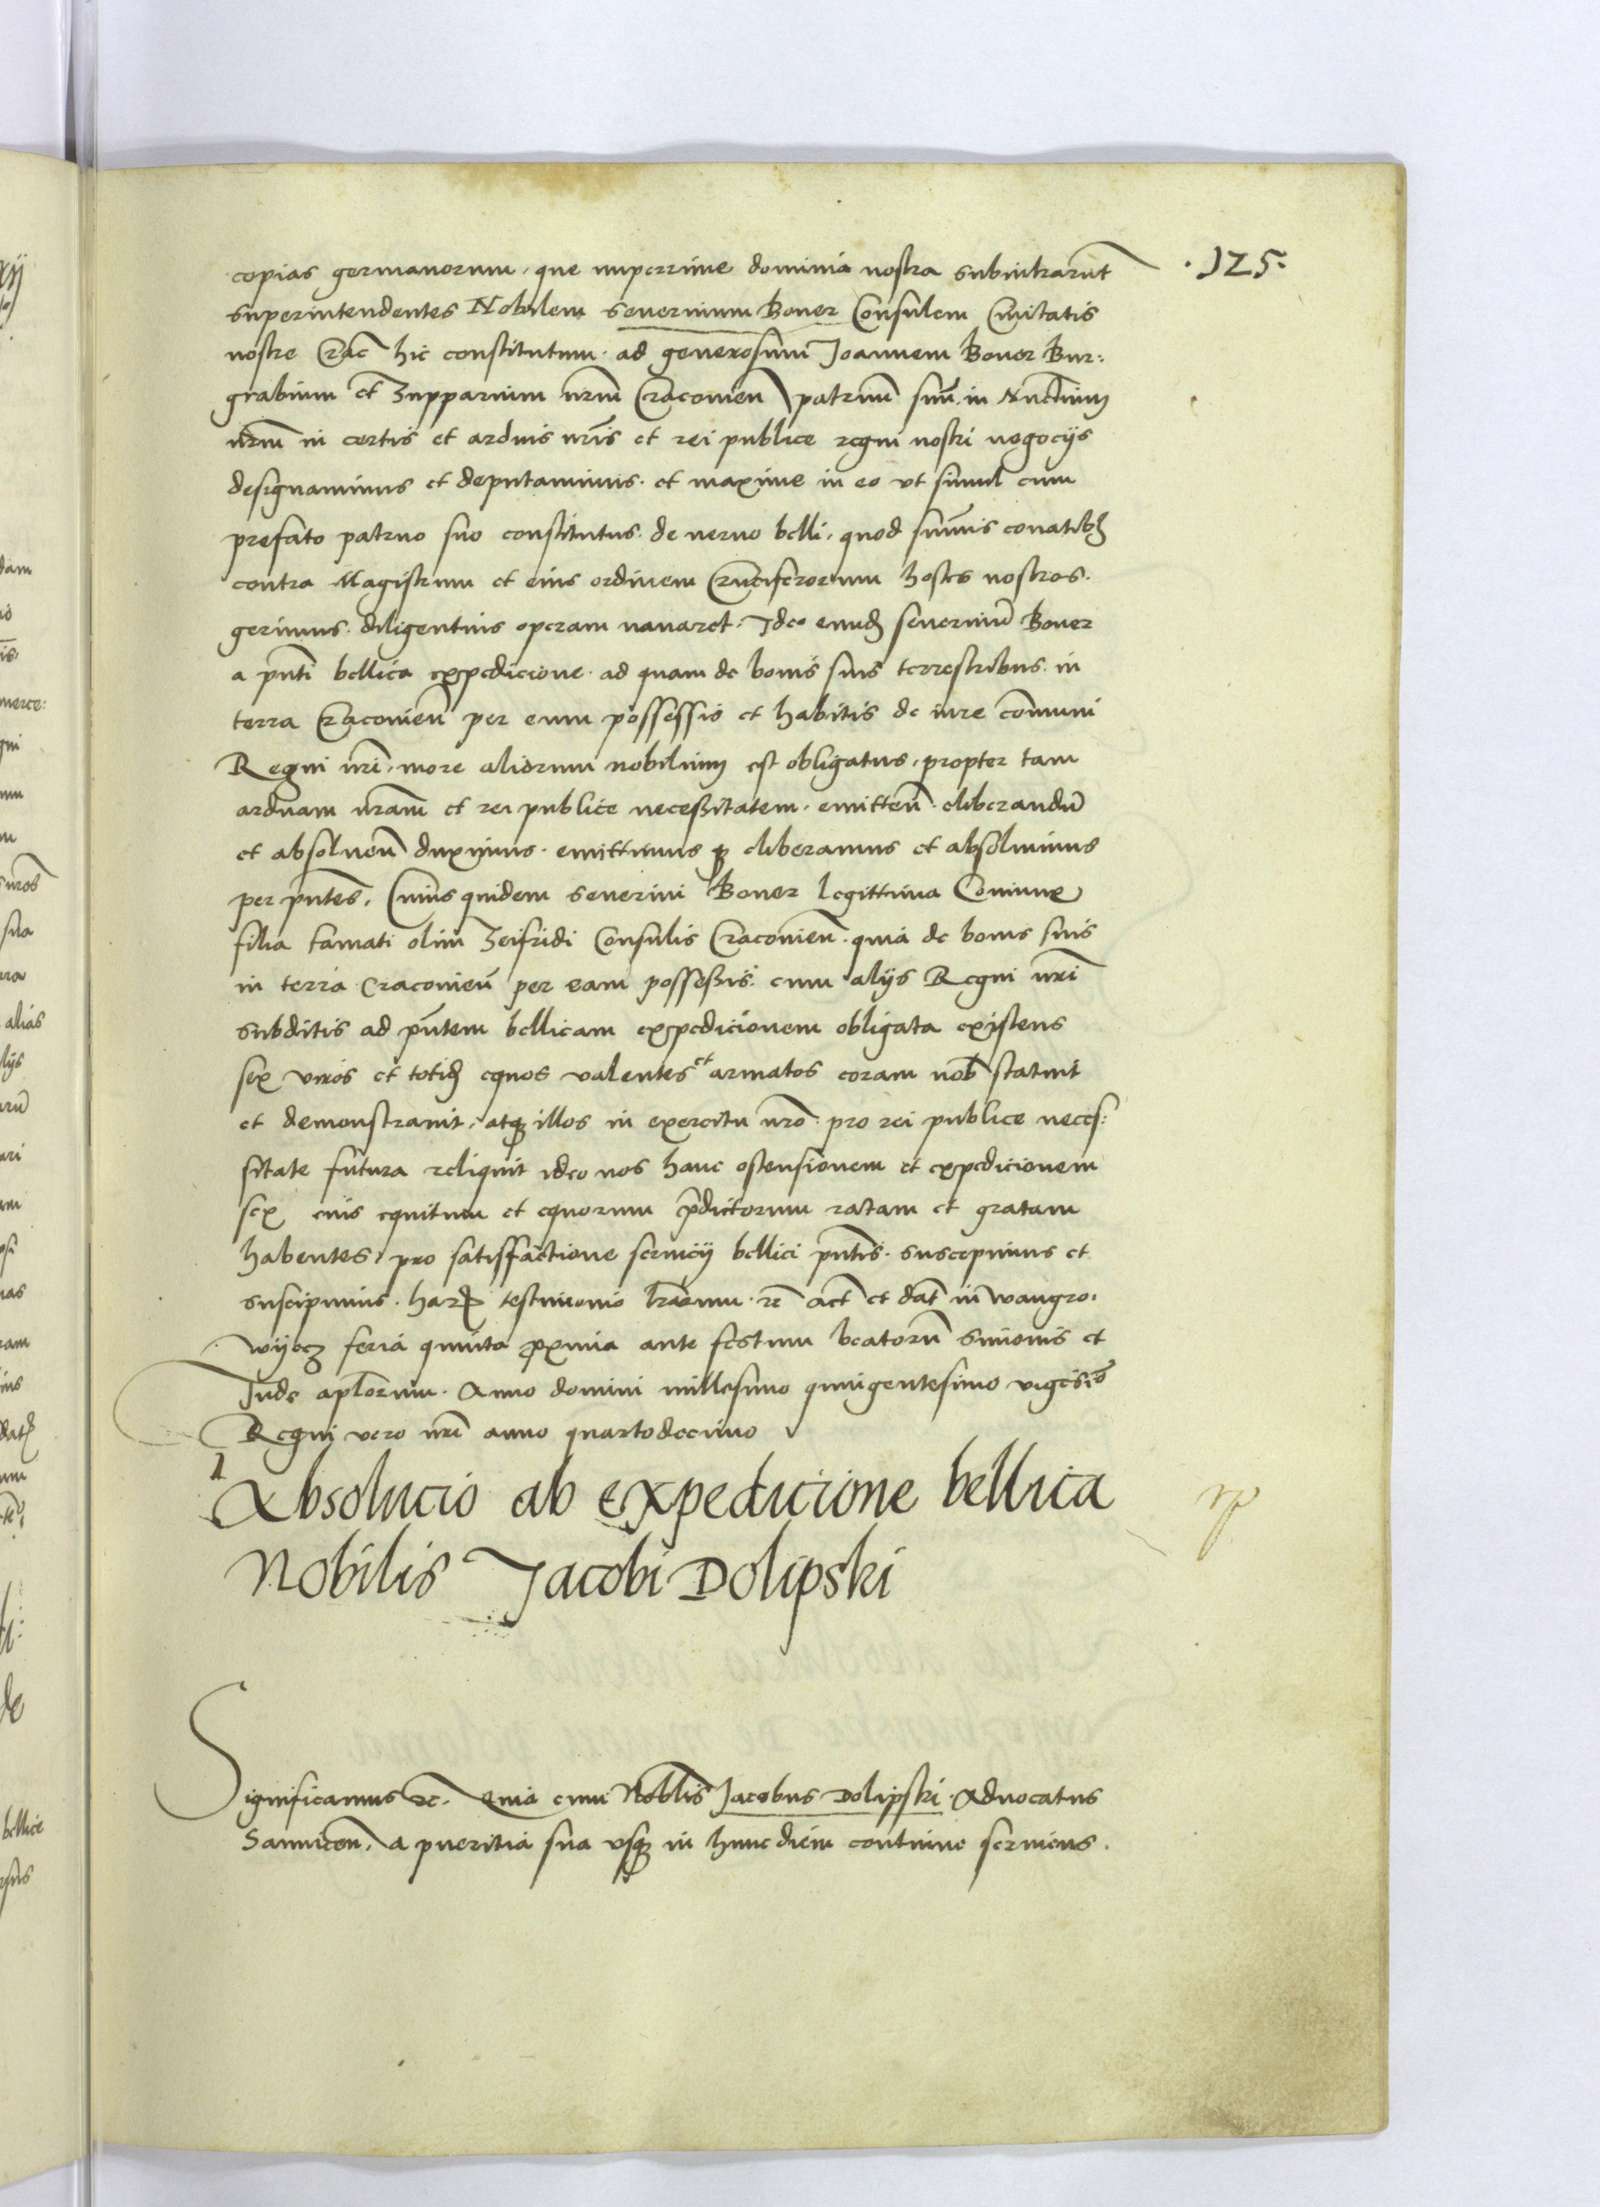 .125.
copias germanorum, que nuperrime dominia nostra subintrarunt
superintendentes Nobilem severinum Boner Consulem Civitatis
nostre Crac hic constitutum. ad generosum Joannem Boner Bur:
grabium et Zupparium nrm Craconien patruum suu. in Nuncium
nrm in certis et arduis nris et rei publice regni nostri negocijs
designavimus et deputavimus. et maxime in eo vt simul cum
prefato patruo suo constitutus. de nervo belli, quod summis conatibq
contra Magistrum et eius ordinem Cruciferorum hostes nostros.
gerimus. diligentius operam navaret. Ideo eundq severinu Boner
a pnti bellica expedicione. ad quam de bonis suis terrestribus. in
terra Craconien per eum possessis et habitis de iure communi
Regni nri, more aliorum nobilium est obligatus, propter tam
arduam nram et rei publice necessitatem. emitten. eliberandu
et absoluen duximus. emittimus qz eliberamus et absoluimus
per pntes, Cuius quidem severini Boner legittima Coniunx
filia famati olim Zeifridi Consulis Craconien. quia de bonis suis
in terra Craconien per eam possessis. cum alijs Regni nri
subditis ad pntem bellicam expedicionem obligata existens
sex viros et totidq equos valentes et armatos coram nob statuit
et demonstravit, atqz illos in exercitu nro. pro rei publice neces:
sitate futura reliquit ideo nos hanc ostensionem et expedicionem
sex eius equitum et equorum pdictorum ratam et gratam
habentes, pro satisfactione servicij bellici pntis. suscepimus et
suscipimus. harz testimonio lrarum. rc act et dat in wangro.
wijecz feria quinta proxima ante festum beatoru Simonis et
Jude aplorum. Anno domini millesimo quingentesimo vigesio
Regni vero nri anno quartodecimo
Absolucio ab expedicione bellica
Nobilis Jacobi Dolipski
Significamus rc. Quia cum Noblis Jacobus Dolipski Advocatus
Sannicen, a pueritia sua vsqz in hunc diem continue serviens.